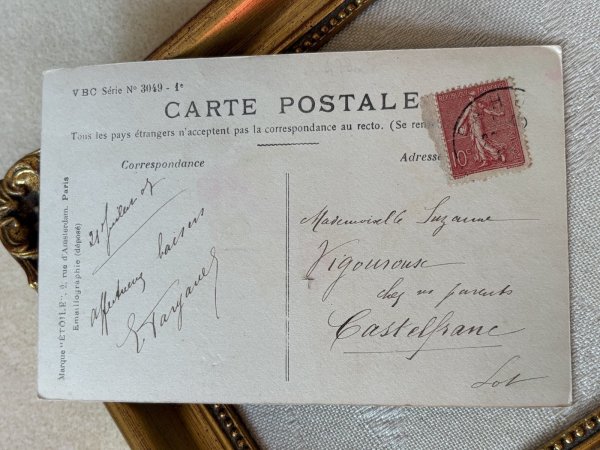 VBC Série N° 3049 - 1e
CARTE POSTALE
Tous les pays étrangers n'acceptent pas la correspondance au recto. (Se ren
Correspondance
Adresse
Marque "ÉTOILE", 2, rue d'Amsterdam, Paris
Emaillographie (déposé)
21 Juillet 07
affectueux baisers
Mademoiselle Suzanne
Vigourouse
chez ses parents
Castelfranc
Lot
10